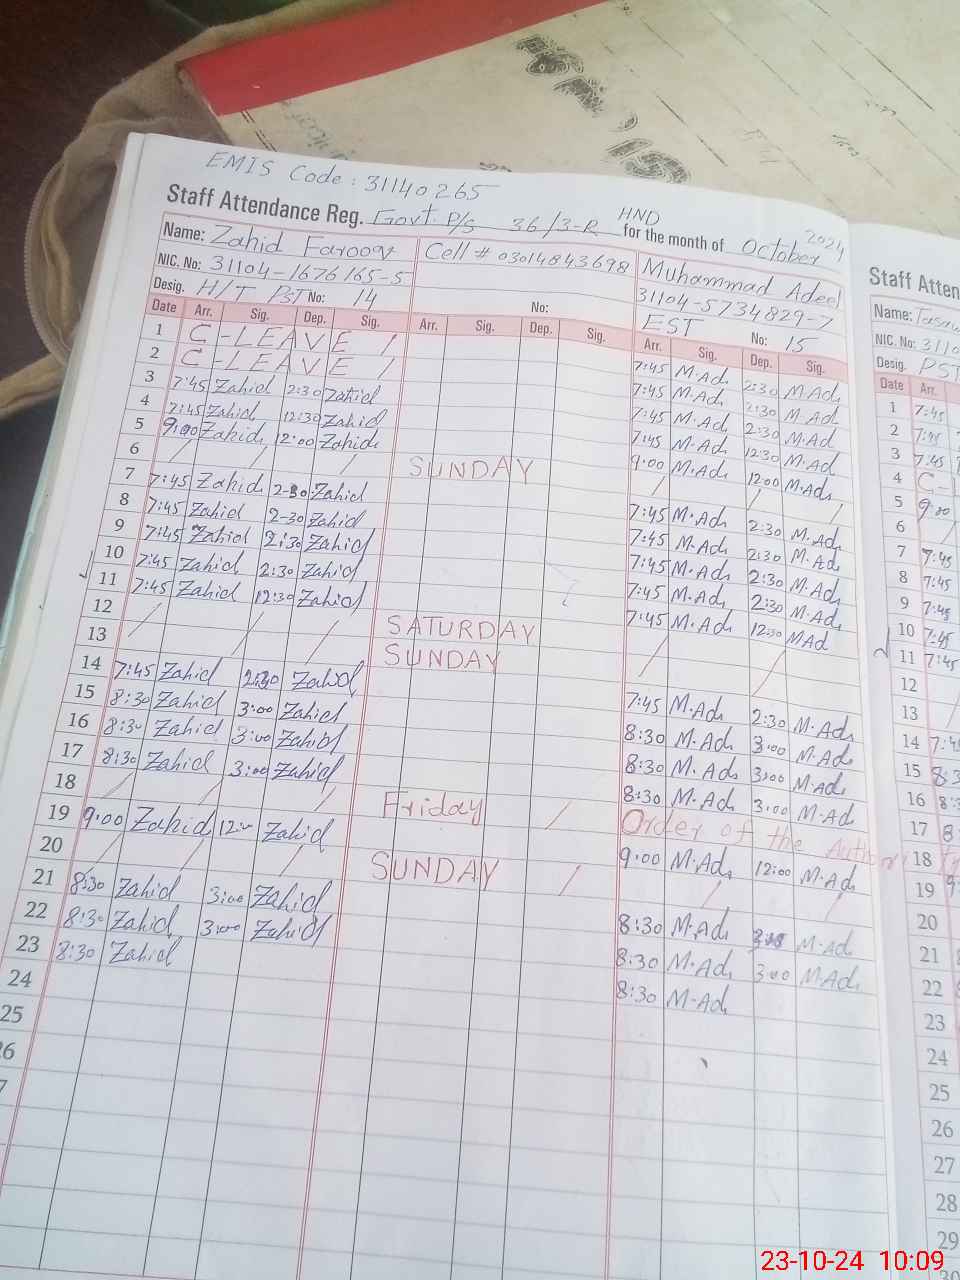 EMIS Code : 31140265
Staff Attendance Reg. Govt. P/S 36/3-R HND for the month of October 2024
Name: Zahid Farooq Cell # 03014843698 Muhammad Adeel
NIC. No: 31104-1676165-5 31104-5734829-7
Desig. H/T PST No: 14 No: EST No: 15
Date Arr. Sig. Dep. Sig. Arr. Sig. Dep. Sig. Arr. Sig. Dep. Sig.
1 C-LEAVE / 7:45 M.Ad 2:30 M.Ad
2 C-LEAVE / 7:45 M.Ad 2:30 M.Ad
3 7:45 Zahid 2:30 Zahid 7:45 M.Ad 2:30 M.Ad
4 7:45 Zahid 12:30 Zahid 7:45 M.Ad 12:30 M.Ad
5 9:00 Zahid 12:00 Zahid 9:00 M.Ad 12:00 M.Ad
6 / / / SUNDAY / / /
7 7:45 Zahid 2-30 Zahid 7:45 M.Ad 2:30 M.Ad
8 7:45 Zahid 2-30 Zahid 7:45 M.Ad 2:30 M.Ad
9 7:45 Zahid 2:30 Zahid 7:45 M.Ad 2:30 M.Ad
10 7:45 Zahid 2:30 Zahid 7:45 M.Ad 2:30 M.Ad
11 7:45 Zahid 12:30 Zahid 7:45 M.Ad 12:30 MAd
12 / / / SATURDAY / /
13 SUNDAY
14 7:45 Zahid 2:30 Zahid 7:45 M.Ad 2:30 M.Ad
15 8:30 Zahid 3:00 Zahid 8:30 M.Ad 3:00 M.Ad
16 8:30 Zahid 3:00 Zahid 8:30 M.Ad 3:00 M.Ad
17 8:30 Zahid 3:00 Zahid 8:30 M.Ad 3:00 M.Ad
18 / / / Friday / Order of the
19 9:00 Zahid 12:00 Zahid 9:00 M.Ad 12:00 M.Ad
20 / / / SUNDAY / / /
21 8:30 Zahid 3:00 Zahid 8:30 M.Ad M.Ad
22 8:30 Zahid 3:00 Zahid 8:30 M.Ad 3:00 M.Ad
23 8:30 Zahid 8:30 M-Ad
24
25
Staff Atten
Name:
NIC. No: 3110
Desig. PST
Date Arr.
1 7:45
2 7:45
3 7:45
4 C-L
5 9:00
6 /
7 7:45
8 7:45
9 7:45
10 7:45
11 7:45
12
13
14 7:4
15 8:3
16 8:
17 8:
18
19 9
20
21
22
23
24
25
26
27
28
29
30
23-10-24 10:09